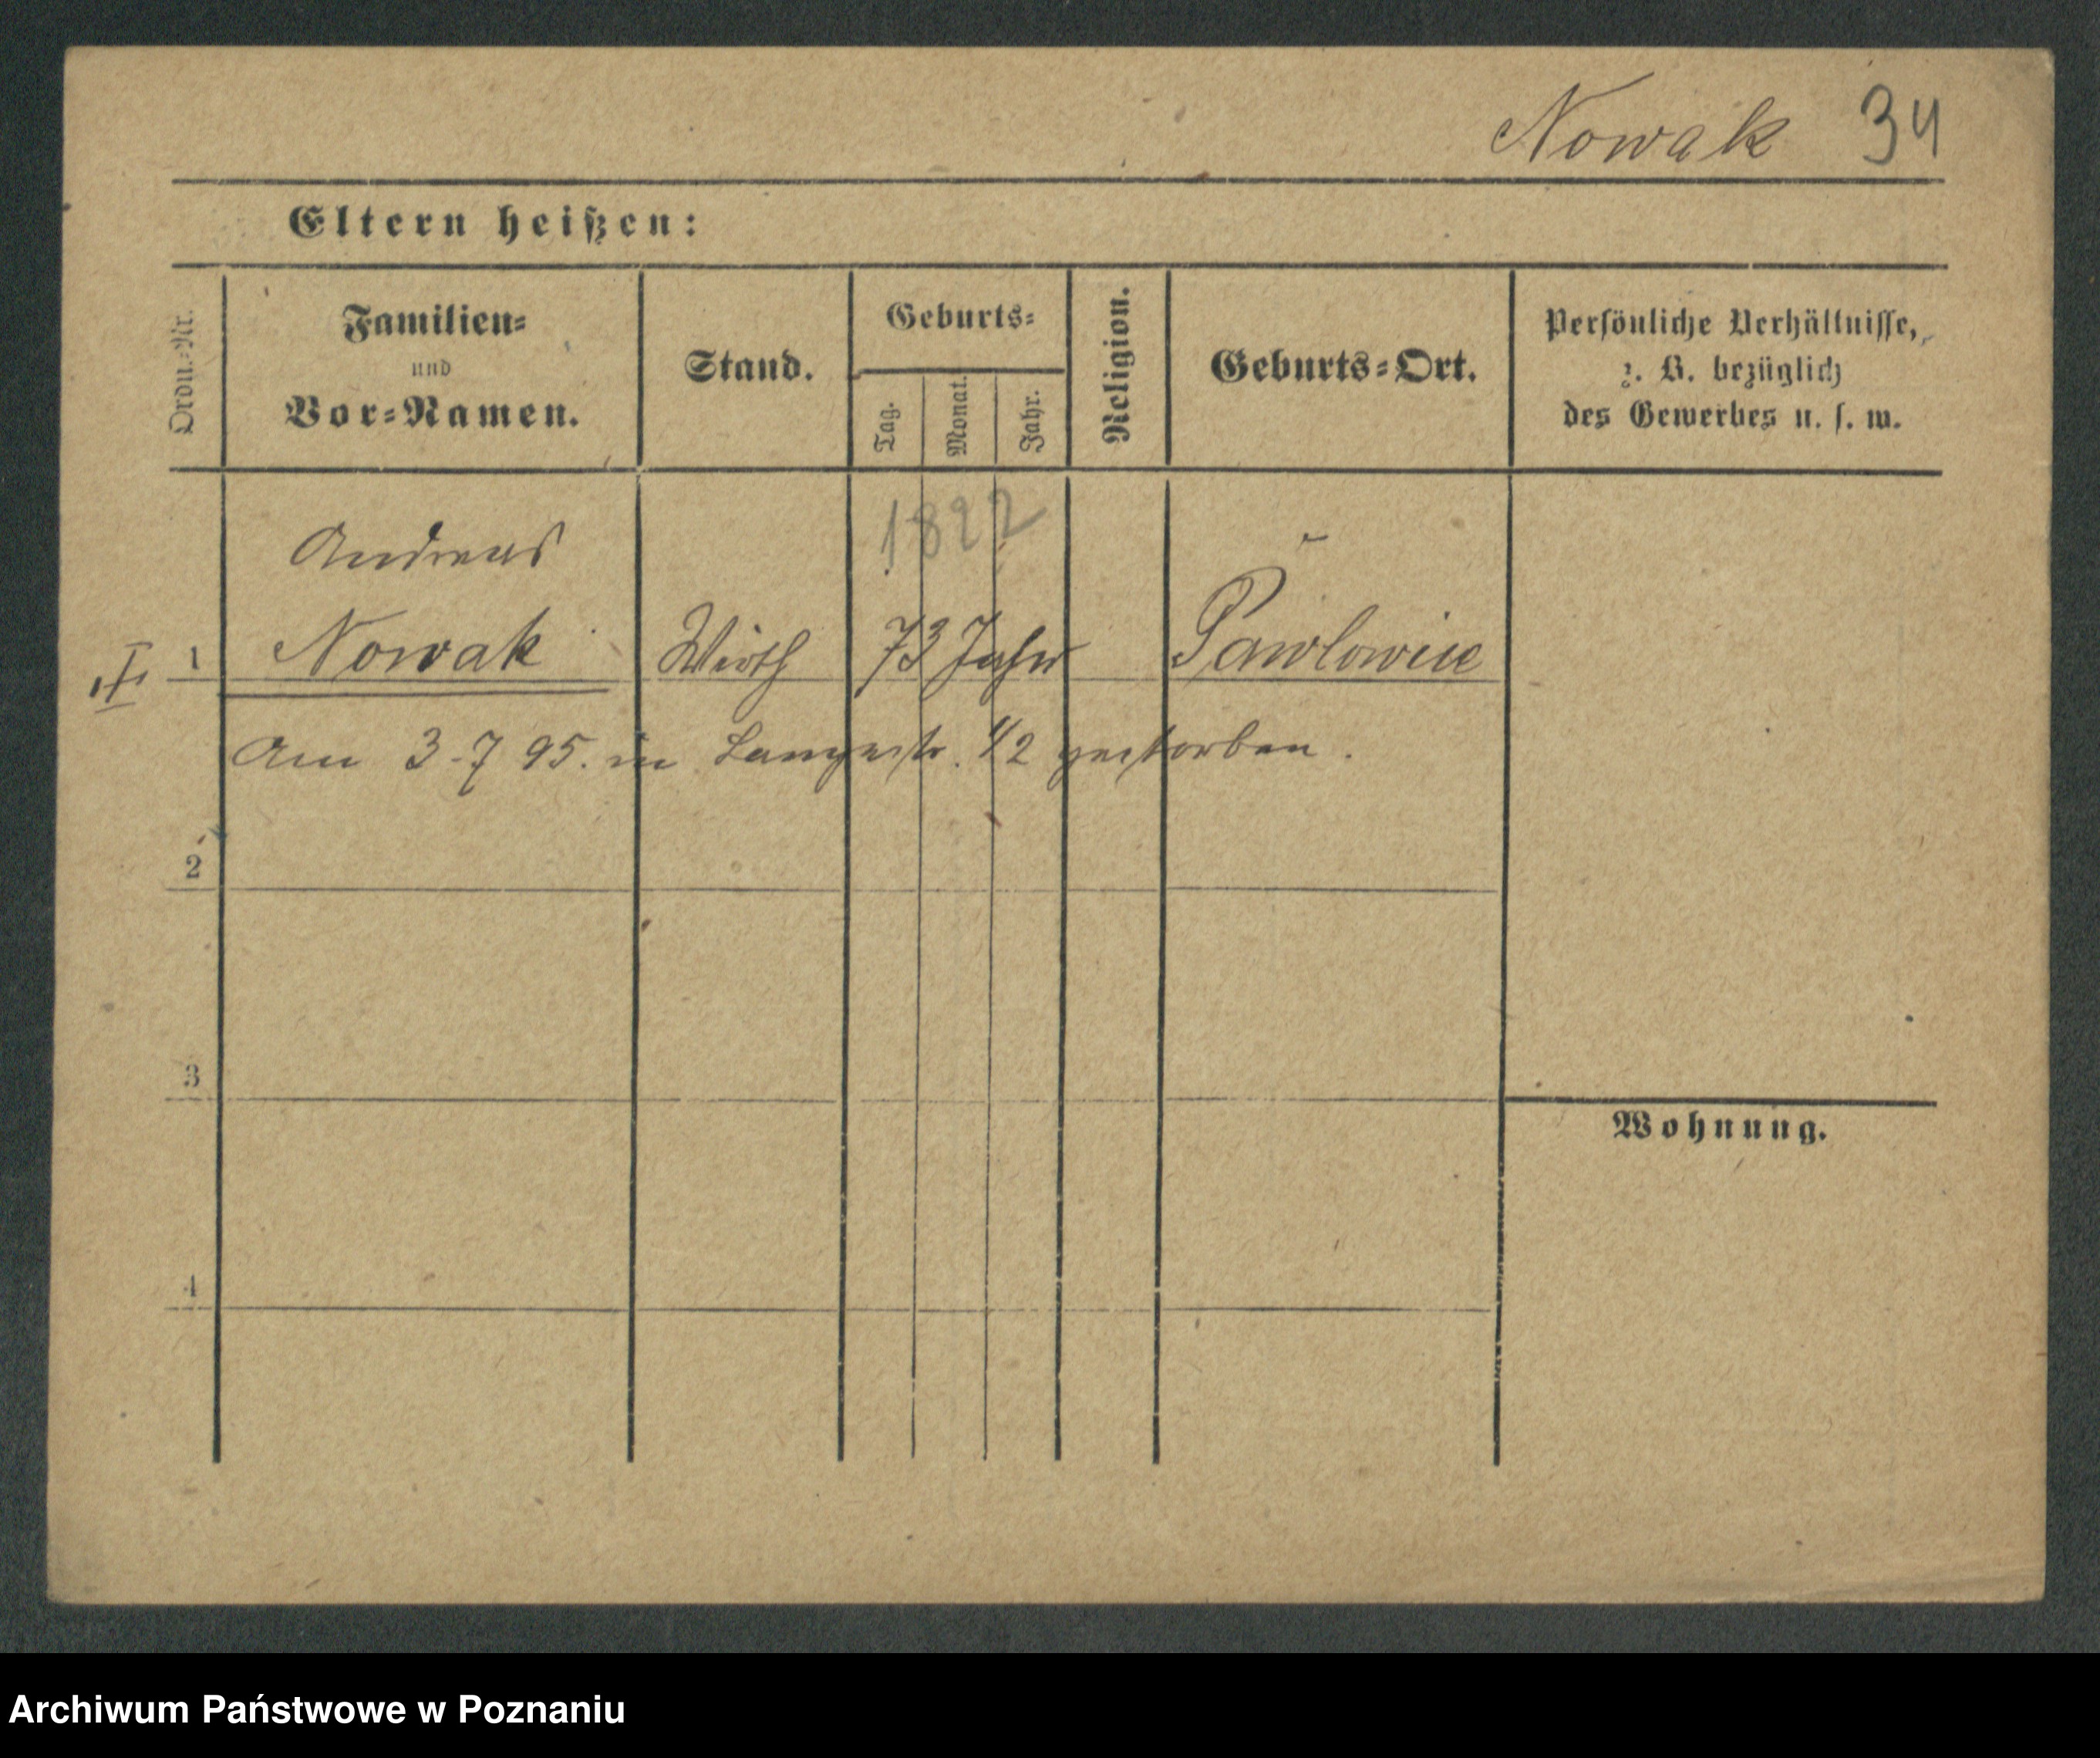 Nowak 34
Eltern heißen:
Ordn.-Nr.
Familien-
und
Vor-Namen.
Stand.
Geburts-
Tag.
Monat.
Jahr.
Religion.
Geburts-Ort.
Persönliche Verhältnisse,
z. B. bezüglich
des Gewerbes u. s. w.
1822
Andreas
1 Nowak Wirth 73 Jahr Pawlowice
Am 3-7 95. in Langestr. 1/2 gestorben.
2
3
Wohnung.
4
Archiwum Państwowe w Poznaniu